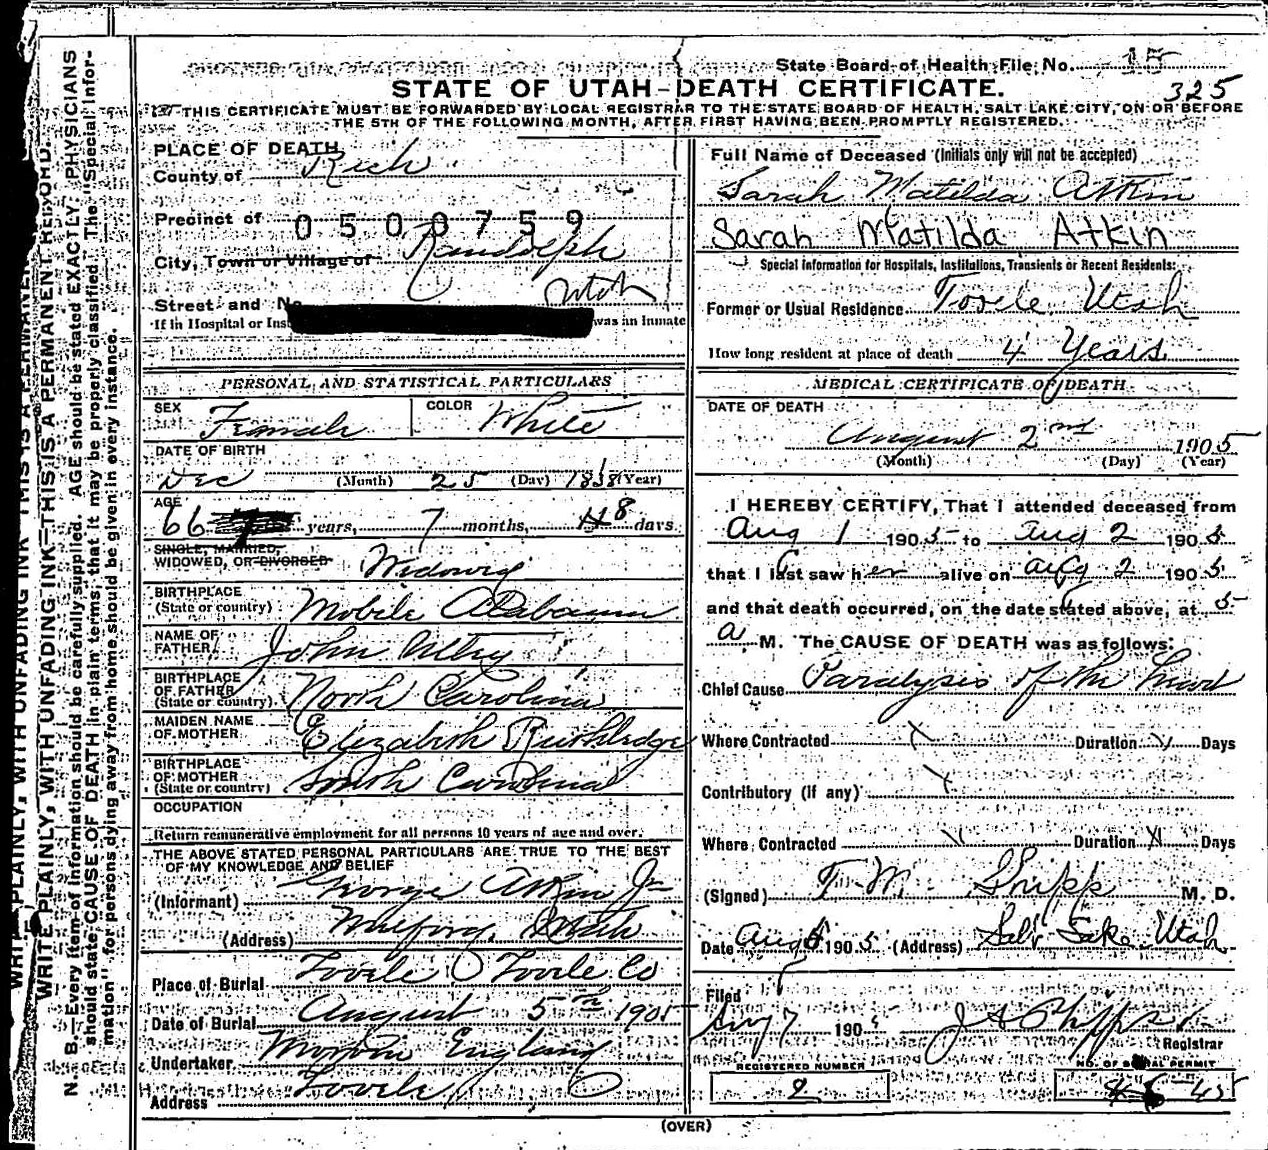 State Board of Health File No. 15
325
STATE OF UTAH—DEATH CERTIFICATE.
THIS CERTIFICATE MUST BE FORWARDED BY LOCAL REGISTRAR TO THE STATE BOARD OF HEALTH, SALT LAKE CITY, ON OR BEFORE
THE 5TH OF THE FOLLOWING MONTH, AFTER FIRST HAVING BEEN PROMPTLY REGISTERED.
PLACE OF DEATH
County of Rich
Precinct of 0500759
City, Town or Village of Randolph
Utah
Street and No
If in Hospital or Inst was an Inmate
PERSONAL AND STATISTICAL PARTICULARS
SEX Female COLOR White
DATE OF BIRTH
Dec (Month) 25 (Day) 1838 (Year)
AGE
66 years, 7 months, 8 days
SINGLE, MARRIED,
WIDOWED, OR DIVORCED Widow
BIRTHPLACE
(State or country) Mobile Alabama
NAME OF
FATHER John Utley
BIRTHPLACE
OF FATHER
(State or country) North Carolina
MAIDEN NAME
OF MOTHER Elizabeth Rutledge
BIRTHPLACE
OF MOTHER
(State or country) South Carolina
OCCUPATION
Return remunerative employment for all persons 10 years of age and over.
THE ABOVE STATED PERSONAL PARTICULARS ARE TRUE TO THE BEST
OF MY KNOWLEDGE AND BELIEF
(Informant) George Atkin Jr
(Address) Milford, Utah
Place of Burial Tooele Tooele Co
Date of Burial August 5th 1905
Undertaker England
Address Tooele
Full Name of Deceased (Initials only will not be accepted)
Sarah Matilda Atkin
Sarah Matilda Atkin
Special Information for Hospitals, Institutions, Transients or Recent Residents:
Former or Usual Residence Tooele Utah
How long resident at place of death 4 Years
MEDICAL CERTIFICATE OF DEATH
DATE OF DEATH
August 2nd 1905
(Month) (Day) (Year)
I HEREBY CERTIFY, That I attended deceased from
Aug 1 1905 to Aug 2 1905
that I last saw her alive on Aug 2 1905
and that death occurred, on the date stated above, at 5
a M. The CAUSE OF DEATH was as follows:
Chief Cause Paralysis of the heart
Where Contracted x Duration x Days
Contributory (if any) x
Where Contracted x Duration x Days
(Signed) T. M. M. D.
Date Aug 1905 (Address) Salt Lake Utah
Filed
Aug 7 190 J A Phipps
Registrar
REGISTERED NUMBER
2
NO. OF BURIAL PERMIT
45
(OVER)
WRITE PLAINLY, WITH UNFADING INK—THIS IS A PERMANENT RECORD.
N. B.—Every item of information should be carefully supplied. AGE should be stated EXACTLY. PHYSICIANS
should state CAUSE OF DEATH in plain terms, that it may be properly classified. The "Special Infor-
mation" for persons dying away from home should be given in every instance.